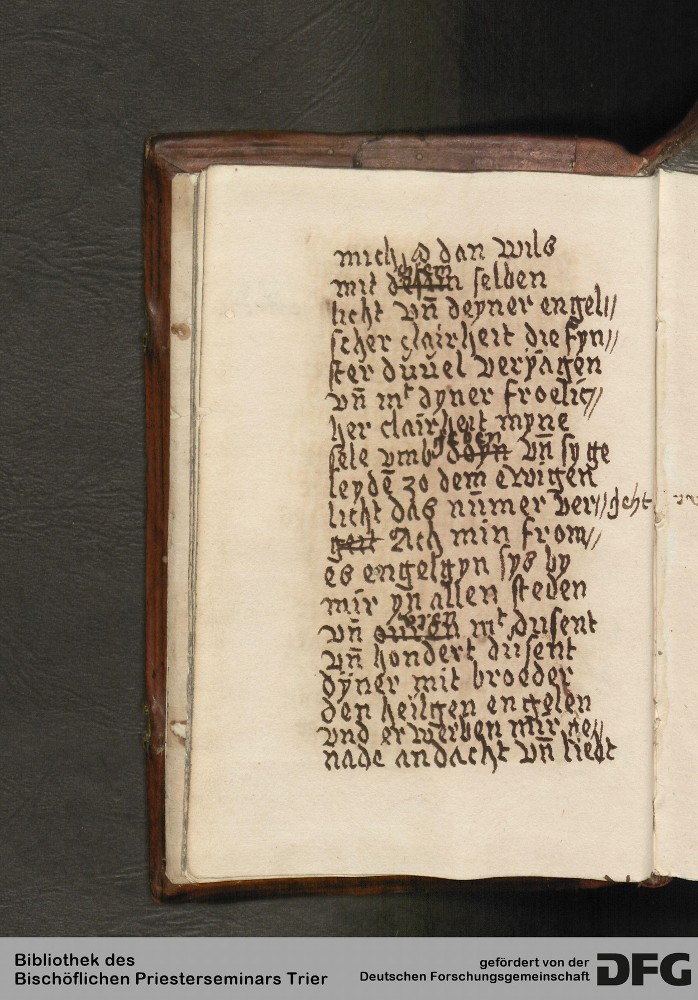 mich so dan wils
mit desem selben
licht vn̄ deyner engel//
scher clairheit die fyn//
ster düuel veryagen
vn̄ mt dyner froelic//
her clairheit myne
sele vmbgeben vn̄ sy ge
leydē zo dem ewigen
licht das nūmer ver//
geit Ach min from//
es engelgyn sys by
mir yn allen steden
vn̄ mt dusent
vn̄ hondert dusent
dyner mit broeder
den heilgen engelen
vnd erwerben mir ge//
nade andacht vn̄ liebt
Bibliothek des
Bischöflichen Priesterseminars Trier
gefördert von der
Deutschen Forschungsgemeinschaft
DFG